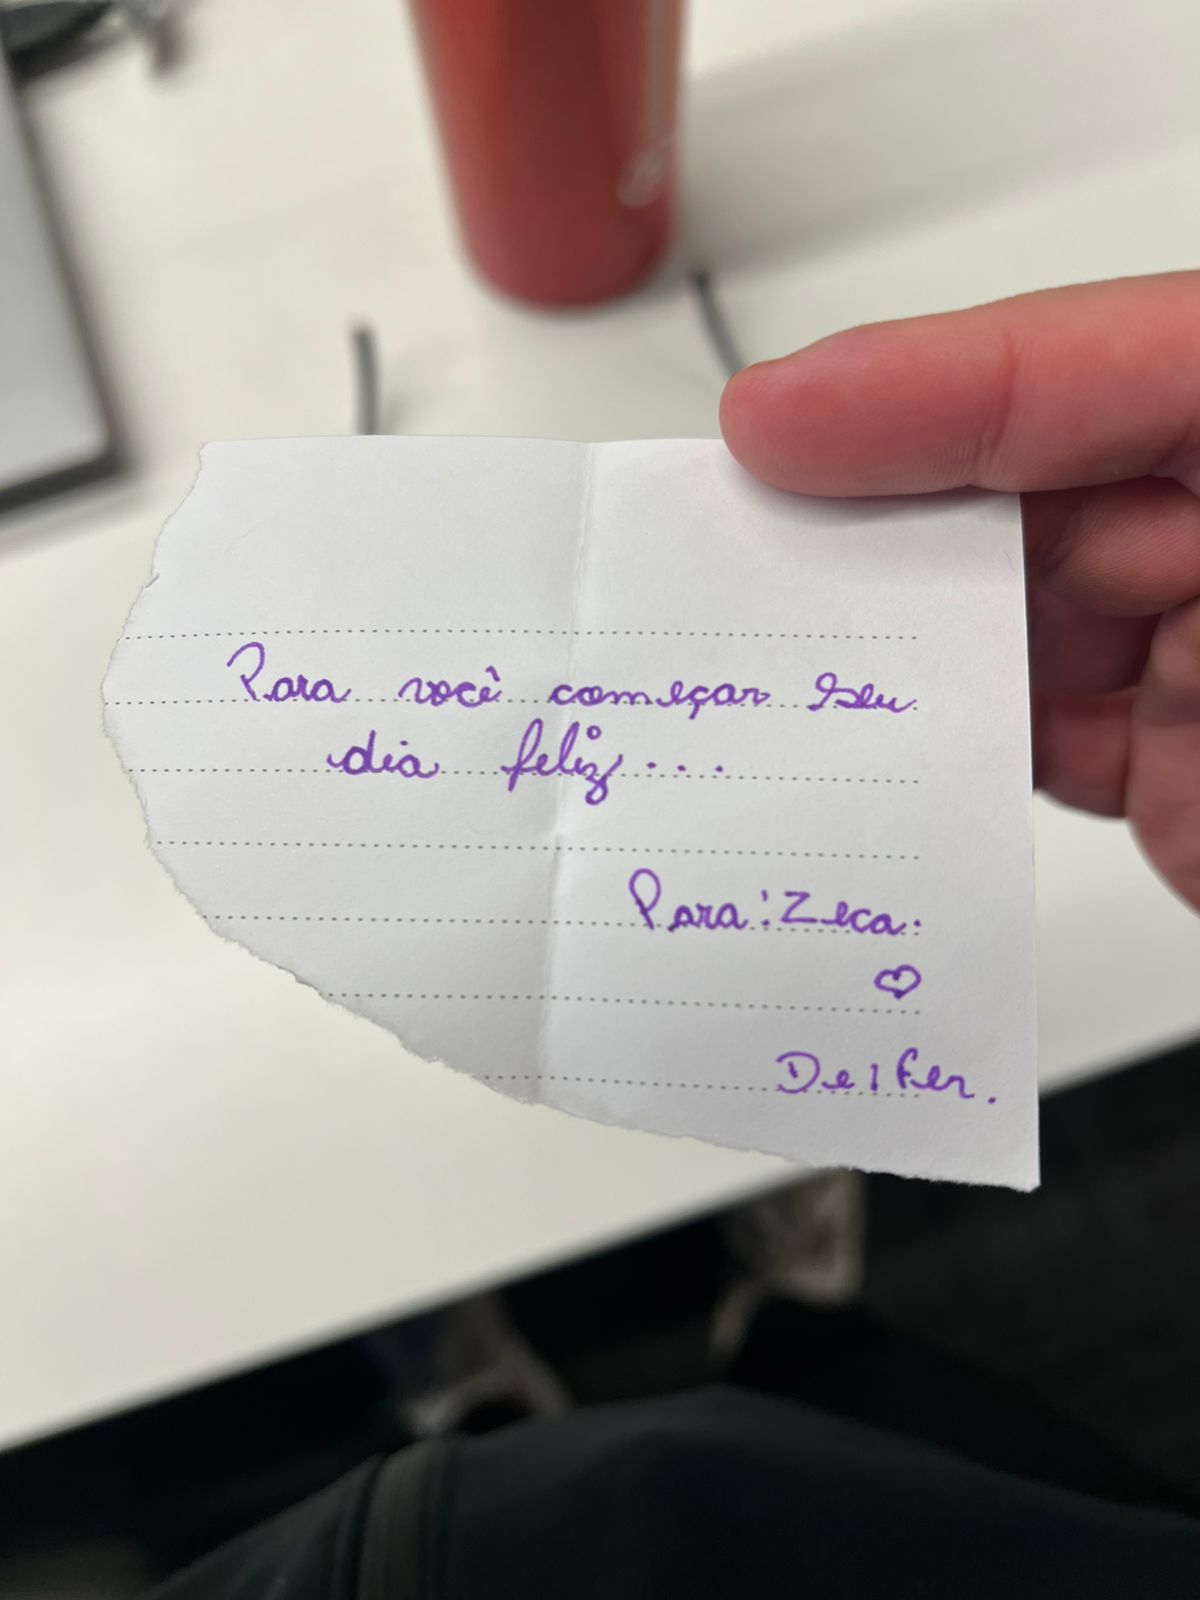 Para você começar seu
dia feliz...
Para: Zeca.
♡
De: Fer.